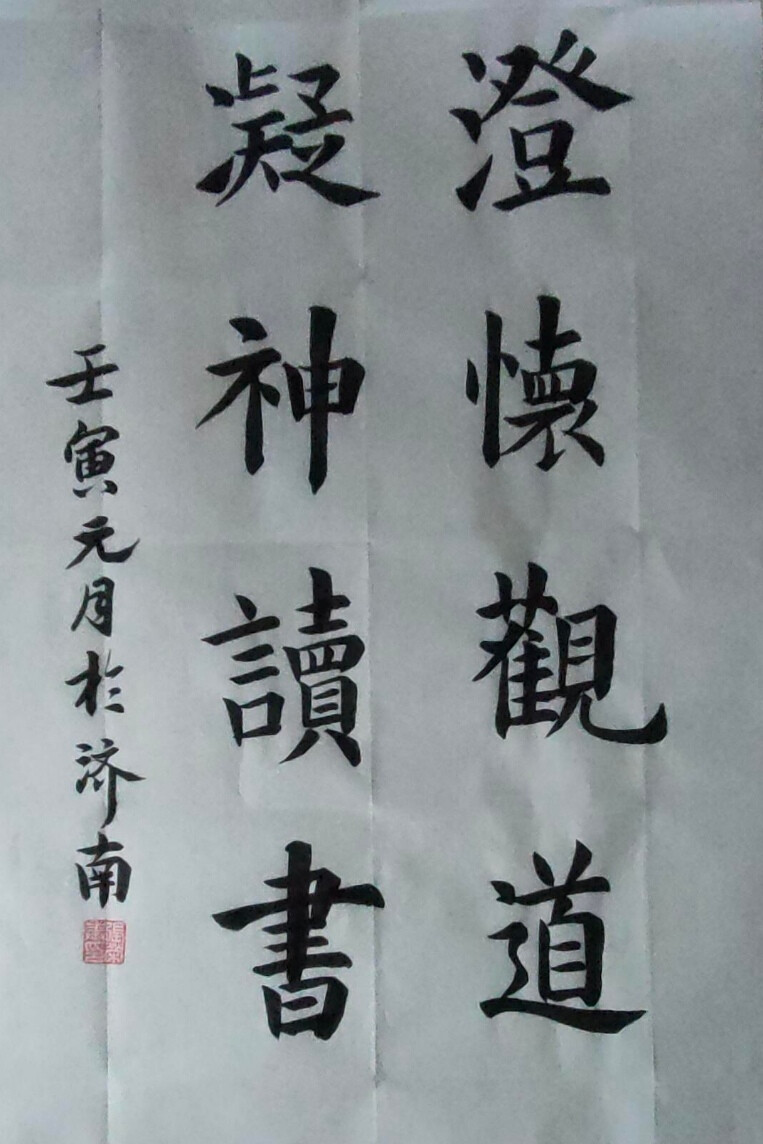 澄懷觀道
凝神讀書
壬寅元月於济南